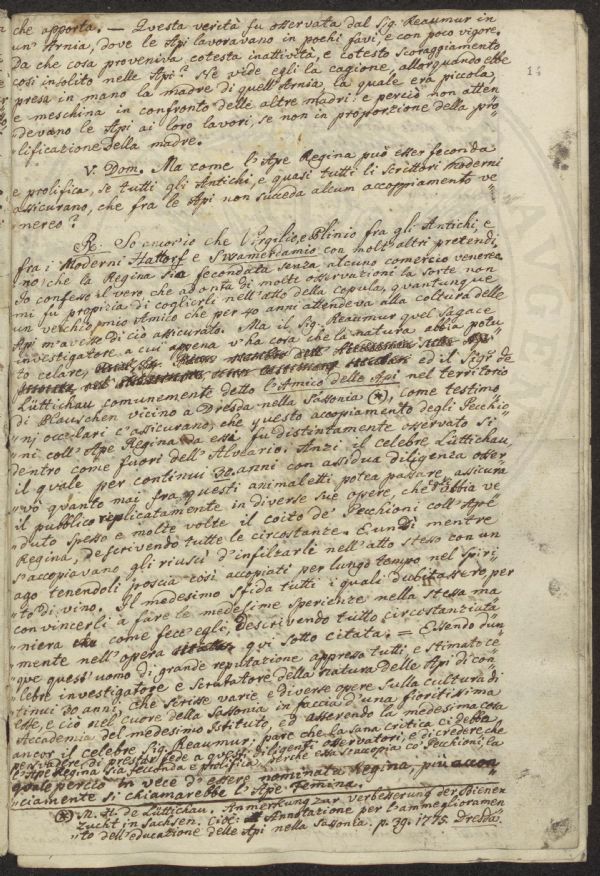 che apporta. — Questa verità fu osservata dal Sig. Reaumur in
un' Arnia, dove le Api lavoravano in pochi favi, e con poco vigore.
Da che cosa proveniva cotesta inattività, e cotesto scoraggiamento
così insolito nelle Api? Ne vide egli la cagione, allorquando ebbe
presa in mano la madre di quell'Arnia, la quale era piccola,
e meschina in confronto delle altre madri: e perciò non atten
devano le Api ai loro lavori, se non in proporzione della pro=
lificazione della madre.
V. Dom. Ma come l'Ape Regina può esser feconda
e prolifica, se tutti gli Antichi, e quasi tutti li Scrittori moderni
assicurano, che fra le Api non succeda alcun accoppiamento ve=
nereo?
R. So ancor'io che Virgilio, e Plinio fra gli Antichi, e
fra i Moderni Hattorf e Swamerdamio con molt'altri pretendi,
no, che la Regina sia fecondata senza alcuno comercio venereo.
Io confesso il vero che ad onta di molte osservazioni la sorte non
mi fu propizia di coglierli nell'atto della copula, quantunque
un vecchio mio Amico che per 40 anni attendeva alla coltura delle
Api m'avesse di ciò assicurato. Ma il Sig. Reaumur quel sagace
investigatore a cui appena v'ha cosa che la natura abbia potu
to celare, ed il Sigr de
Lüttichau comunemente detto l'Amico delle Api nel territorio
di Plauschen vicino a Dresda nella Sassonia (*), come testimo
nj occulari c'assicurano, che questo accopiamento degli Pecchio=
ni coll'Ape Regina da essi fu distintamente osservato sì
dentro come fuori dell'Alveario. Anzi il celebre Lüttichau,
il quale per continui 30 anni con assidua diligenza osser
vò quanto mai fra questi animaletti potea passare, assicura
il pubblico replicatamente in diverse sue opere, che abbia ve
duto spesso e molte volte il coito de' Pecchioni coll'Ape
Regina, descrivendo tutte le circostanze. E un dì mentre
s'accopiavano gli riuscì d'infilzarli nell'atto stesso con un
ago tenendoli poscia così accopiati per lungo tempo nel spiri
to di vino. Il medesimo sfida tutti i quali dubitassero per
convincerli a fare le medesime sperienze nella stessa ma
niera come fece egli, descrivendo tutto circostanziata
mente nell'opera qui sotto citata. = Essendo dun
que quest'uomo di grande reputazione appresso tutti, e stimato cè
lebre investigatore e scrutatore della natura delle Api di con
tinui 30 anni, che scrisse varie e diverse opere sulla cultura di
esse, e ciò nel cuore della Sassonia in faccia d'una fioritissima
Accademia del medesimo Istituto, ed asserendo la medesima cosa
ancor il celebre Sig. Reaumur, pare che la sana critica ci debba
persvadere di prestar fede a questi diligenti osservatori, e di credere che
l'Ape Regina sia feconda e prolifica, perchè essa s'accopia co' Pecchioni, la
quale perciò in vece d'essere nominata Regina, più accon
ciamente si chiamarebbe l'Ape Femina.
(*) M. H. de Lüttichau. Anmerkung zur Verbesserung der Bienen
zucht in Sachsen. Cioè: Annotazione per l'ammeglioramen
to dell'educazione delle Api nella Sassonia. p. 39. 1775. Dresda